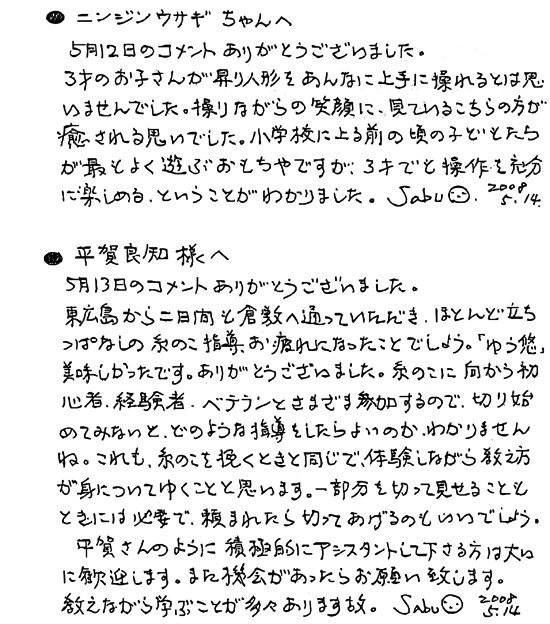 ● ニンジンウサギちゃんへ
5月12日のコメントありがとうございました。
3才のお子さんが昇り人形をあんなに上手に操れるとは思
いませんでした。操りながらの笑顔に、見ているこちらの方が
癒される思いでした。小学校に上る前の頃の子どもたち
が最もよく遊ぶおもちゃですが、3才でも操作を充分
に楽しめる、ということがわかりました。Sabu 2008 5.14.
● 平賀良知様へ
5月13日のコメントありがとうございました。
東広島から二日間も倉敷へ通っていただき、ほとんど立ち
っぱなしの糸のこ指導、お疲れになったことでしょう。「ゆう悠」
美味しかったです。ありがとうございました。糸のこに向から初
心者、経験者、ベテランとさまざま参加するので、切り始
めてみないと、どのような指導をしたらよいのか、わかりません
ね。これも、糸のこを挽くときと同じで、体験しながら教え方
が身についてゆくことと思います。一部分を切って見せることも
ときには必要で、頼まれたら切ってあげるのもいいでしょう。
平賀さんのように積極的にアシスタントして下さる方は大い
に歓迎します。また機会があったらお願い致します。
教えながら学ぶことが多々あります故。Sabu 2008 5.14